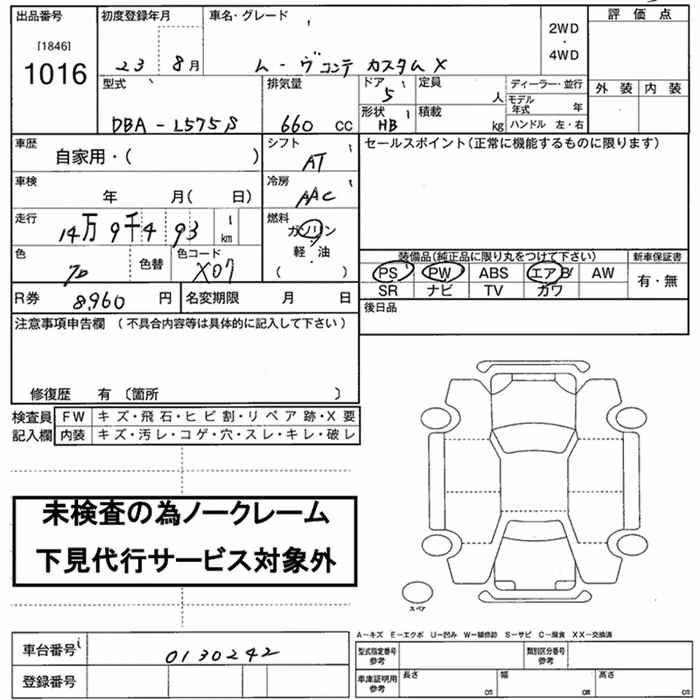 出品番号 初度登録年月 車名・グレード 2WD ・ 4WD 評価点
[1846]
1016
23 8月 ムーヴコンテ カスタムX
外装 内装
型式 排気量 ドア 定員 ディーラー・並行
5 人 モデル年式 年
DBA-L575S 660 CC 形状 HB 積載 kg ハンドル 左・右
車歴 シフト セールスポイント(正常に機能するものに限ります)
自家用・( ) AT
車検 冷房
年 月( 日) AAC
走行 燃料
14万9千493 km ガソリン
軽・油
( )
色 色替 色コード
X07
装備品(純正品に限り丸をつけて下さい) 新車保証書
PS PW ABS エアB AW 有・無
SR ナビ TV カワ
R券 8960 円 名変期限 月 日
後日品
注意事項申告欄 (不具合内容等は具体的に記入して下さい)
修復歴 有 〔箇所 〕
検査員 FW キズ・飛石・ヒビ割・リペア跡・X要
記入欄 内装 キズ・汚レ・コゲ・穴・スレ・キレ・破レ
未検査の為ノークレーム
下見代行サービス対象外
スペア
A-キズ E-エクボ U-凹み W-補修跡 S-サビ C-腐食 XX-交換済
車台番号 0130242
型式指定番号 参考 類別区分番号 参考
登録番号
車庫証明用 参考 長さ cm 幅 cm 高さ cm